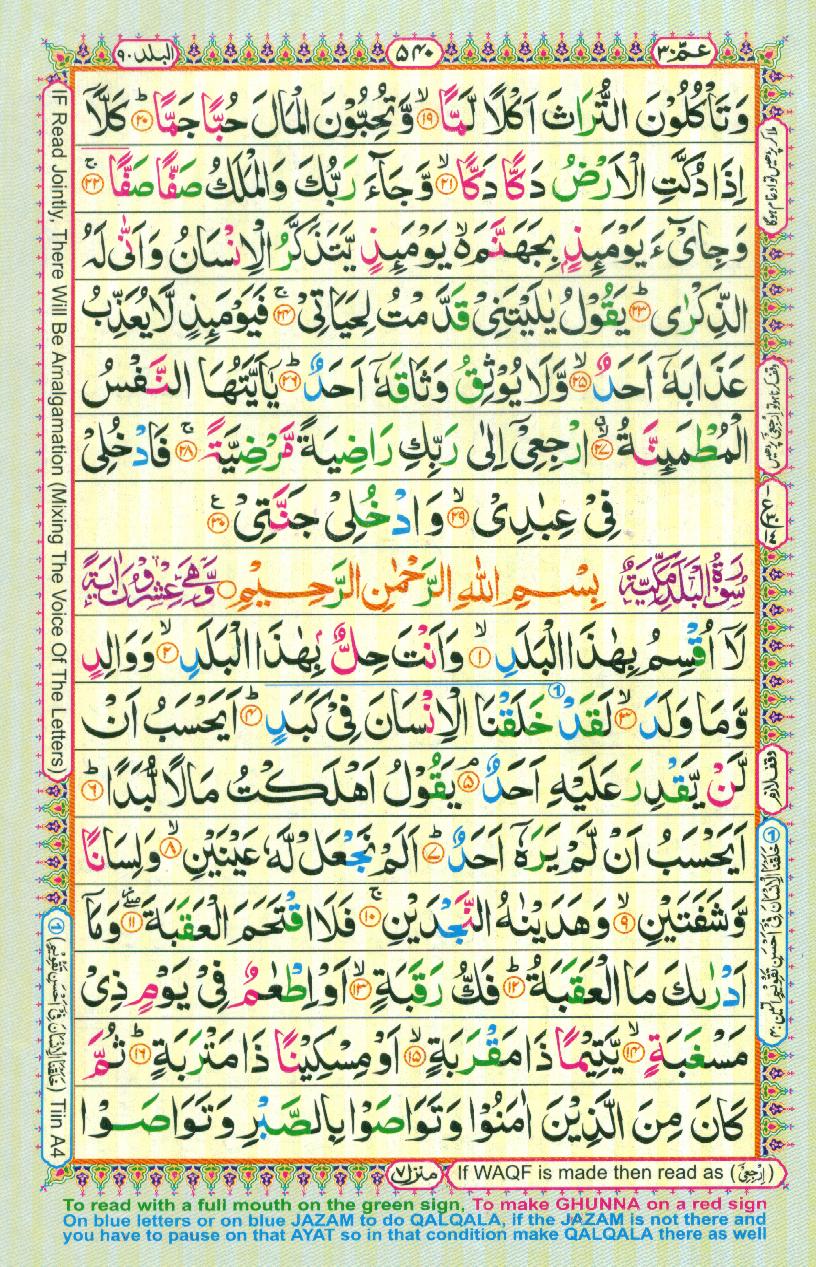 عم ۳۰
۵۴۰
البلد ۹۰
وَتَاْكُلُوْنَ التُّرَاثَ اَكْلًا لَّمًّا ۙ﴿۱۹﴾ وَّتُحِبُّوْنَ الْمَالَ حُبًّا جَمًّا ؕ﴿۲۰﴾ كَلَّاۤ
اِذَا دُكَّتِ الْاَرْضُ دَكًّا دَكًّا ۙ﴿۲۱﴾ وَّجَآءَ رَبُّكَ وَالْمَلَكُ صَفًّا صَفًّا ۚ﴿۲۲﴾
وَجِايْٓءَ يَوْمَئِذٍۭ بِجَهَنَّمَ ۬ۙ يَوْمَئِذٍ يَّتَذَكَّرُ الْاِنْسَانُ وَاَنّٰى لَهُ
الذِّكْرٰى ؕ﴿۲۳﴾ يَقُوْلُ يٰلَيْتَنِيْ قَدَّمْتُ لِحَيَاتِيْ ۚ﴿۲۴﴾ فَيَوْمَئِذٍ لَّا يُعَذِّبُ
عَذَابَهٗۤ اَحَدٌ ۙ﴿۲۵﴾ وَّلَا يُوْثِقُ وَثَاقَهٗۤ اَحَدٌ ؕ﴿۲۶﴾ يٰۤاَيَّتُهَا النَّفْسُ
الْمُطْمَئِنَّةُ ۖ﴿۲۷﴾ ارْجِعِيْۤ اِلٰى رَبِّكِ رَاضِيَةً مَّرْضِيَّةً ۚ﴿۲۸﴾ فَادْخُلِيْ
فِيْ عِبٰدِيْ ۙ﴿۲۹﴾ وَادْخُلِيْ جَنَّتِيْ ﴿۳۰﴾ ع
سُوْرَةُ الْبَلَدِ مَكِّيَّةٌ بِسْمِ اللهِ الرَّحْمٰنِ الرَّحِيْمِ وَّهِيَ عِشْرُوْنَ اٰيَةً
لَاۤ اُقْسِمُ بِهٰذَا الْبَلَدِ ۙ﴿۱﴾ وَاَنْتَ حِلٌّۢ بِهٰذَا الْبَلَدِ ۙ﴿۲﴾ وَوَالِدٍ
وَّمَا وَلَدَ ۙ﴿۳﴾ لَقَدْ خَلَقْنَا الْاِنْسَانَ فِيْ كَبَدٍ ؕ﴿۴﴾ اَيَحْسَبُ اَنْ
لَّنْ يَّقْدِرَ عَلَيْهِ اَحَدٌ ۘ﴿۵﴾ يَقُوْلُ اَهْلَكْتُ مَالًا لُّبَدًا ؕ﴿۶﴾
اَيَحْسَبُ اَنْ لَّمْ يَرَهٗۤ اَحَدٌ ؕ﴿۷﴾ اَلَمْ نَجْعَلْ لَّهٗ عَيْنَيْنِ ۙ﴿۸﴾ وَلِسَانًا
وَّشَفَتَيْنِ ۙ﴿۹﴾ وَهَدَيْنٰهُ النَّجْدَيْنِ ۚ﴿۱۰﴾ فَلَا اقْتَحَمَ الْعَقَبَةَ ۖ﴿۱۱﴾ وَمَاۤ
اَدْرٰىكَ مَا الْعَقَبَةُ ؕ﴿۱۲﴾ فَكُّ رَقَبَةٍ ۙ﴿۱۳﴾ اَوْ اِطْعٰمٌ فِيْ يَوْمٍ ذِيْ
مَسْغَبَةٍ ۙ﴿۱۴﴾ يَّتِيْمًا ذَا مَقْرَبَةٍ ۙ﴿۱۵﴾ اَوْ مِسْكِيْنًا ذَا مَتْرَبَةٍ ؕ﴿۱۶﴾ ثُمَّ
كَانَ مِنَ الَّذِيْنَ اٰمَنُوْا وَتَوَاصَوْا بِالصَّبْرِ وَتَوَاصَوْا
وقف لازم
① خَلَقْنَا الْاِنْسَانَ فِيْ اَحْسَنِ تَقْوِيْمٍ التین ۴
IF Read Jointly, There Will Be Amalgamation (Mixing The Voice Of The Letters)
① (خَلَقْنَا الْاِنْسَانَ فِيْ اَحْسَنِ تَقْوِيْمٍ) Tiin A4
If WAQF is made then read as (اِرْجِعِيْ)
منزل ۷
To read with a full mouth on the green sign, To make GHUNNA on a red sign
On blue letters or on blue JAZAM to do QALQALA, if the JAZAM is not there and
you have to pause on that AYAT so in that condition make QALQALA there as well